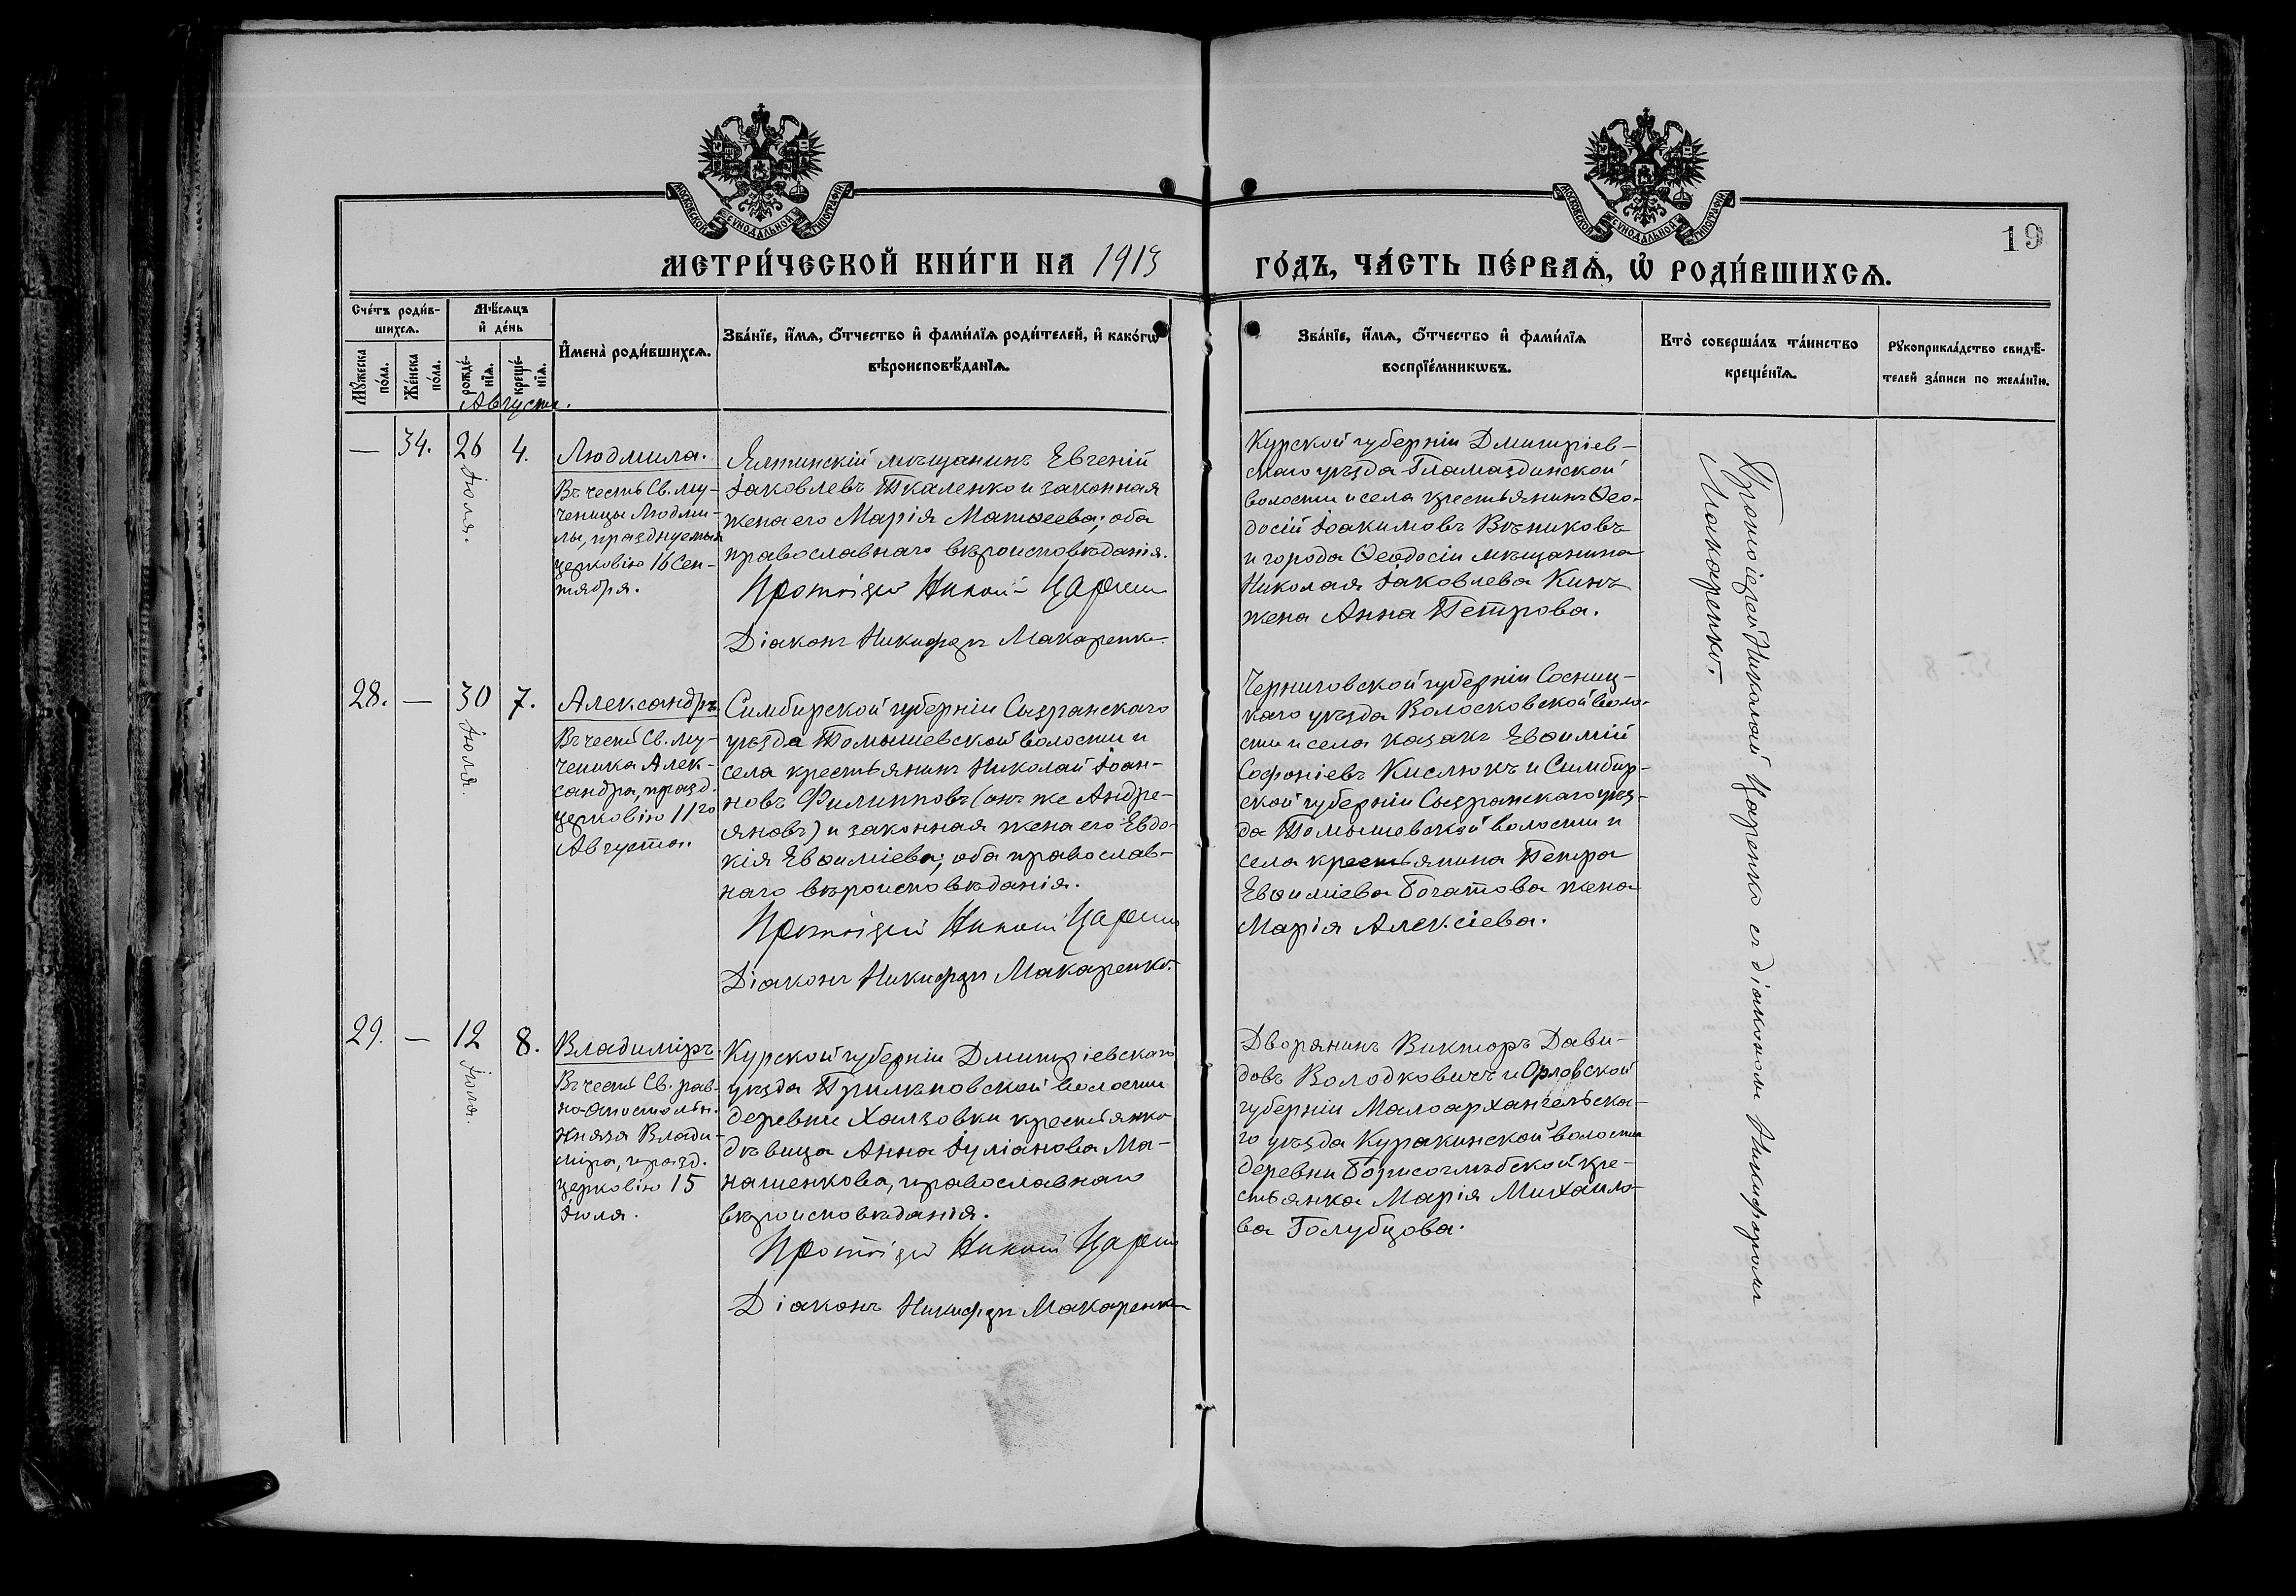 МОСКОВСКОЙ СУНОДАЛЬНОЙ ТИПОГРАФІИ
МОСКОВСКОЙ СУНОДАЛЬНОЙ ТИПОГРАФІИ
19
МЕТРИ́ЧЕСКОЙ КНИ́ГИ НА 1913
ГО́ДЪ, ЧА́СТЬ ПЕ́РВАѦ, Ѡ҆ РОДИ́ВШИХСѦ.
Сче́тъ роди́в-
шихсѧ.
Мꙋ́жеска по́ла.
Же́нска по́ла.
Мѣ́сѧцъ
и҆ де́нь
рожде́-
нїѧ.
креще́-
нїѧ.
И҆мена̀ роди́вшихсѧ.
Зва́нїе, и҆́мѧ, ѻ҆́тчество и҆ фами́лїѧ роди́телей, и҆ како́гѡ
вѣроисповѣ́данїѧ.
Зва́нїе, и҆́мѧ, ѻ҆́тчество и҆ фами́лїѧ
воспрїе́мникѡвъ.
Кто̀ соверша́лъ та́инство
креще́нїѧ.
Рꙋкоприкла́дство свидѣ́-
телей за́писи по жела́нїю.
Августа.
— 34. 26 Іюля. 4.
Людмила.
Въ честь Св. му-
ченицы Людми-
лы, празднуемыя
церковію 16 Сен-
тября.
Ялтинскій мѣщанинъ Евгеній
Іаковлевъ Ткаленко и законная
жена его Марія Матѳеева; оба
православнаго вѣроисповѣданія.
Протоіерей Николай Царенко
Діаконъ Никифоръ Макаренко.
Курской губерніи Дмитріев-
скаго уѣзда Гламаздинской
волости и села крестьянинъ Ѳео-
досій Іоакимовъ Вѣниковъ
и города Ѳеодосіи мѣщанина
Николая Іаковлева Кинъ
жена Анна Петрова.
Протоіерей Николай Царенко съ діакономъ Никифоромъ
Макаренко.
28. — 30 Іюля. 7.
Александръ.
Въ честь Св. му-
ченика Алек-
сандра, празд.
церковію 11го
Августа.
Симбирской губерніи Сызранскаго
уѣзда Томышевской волости и
села крестьянинъ Николай Іоан-
новъ Филипповъ (онъ же Андре-
яновъ) и законная жена его Евдо-
кія Евѳиміева; оба православ-
наго вѣроисповѣданія.
Протоіерей Николай Царенко
Діаконъ Никифоръ Макаренко.
Черниговской губерніи Сосниц-
каго уѣзда Волосковской воло-
сти и села казакъ Евѳимій
Софоніевъ Кислюкъ и Симбир-
ской губерніи Сызранскаго уѣз-
да Томышевской волости и
села крестьянина Петра
Евѳиміева Богатова жена
Марія Алексіева.
29. — 12 Іюля. 8.
Владиміръ.
Въ честь Св. рав-
но-Апостольн.
Князя Влади-
міра, празд.
церковію 15
Іюля.
Курской губерніи Дмитріевскаго
уѣзда Прилѣповской волости
деревни Халзовки крестьянка
дѣвица Анна Іуліанова Ма-
нашенкова, православнаго
вѣроисповѣданія.
Протоіерей Николай Царенко
Діаконъ Никифоръ Макаренко
Дворянинъ Викторъ Дави-
довъ Володковичъ и Орловской
губерніи Малоархангельска-
го уѣзда Куракинской волости
деревни Борисоглѣбской кре-
стьянка Марія Михаило-
ва Голубцова.